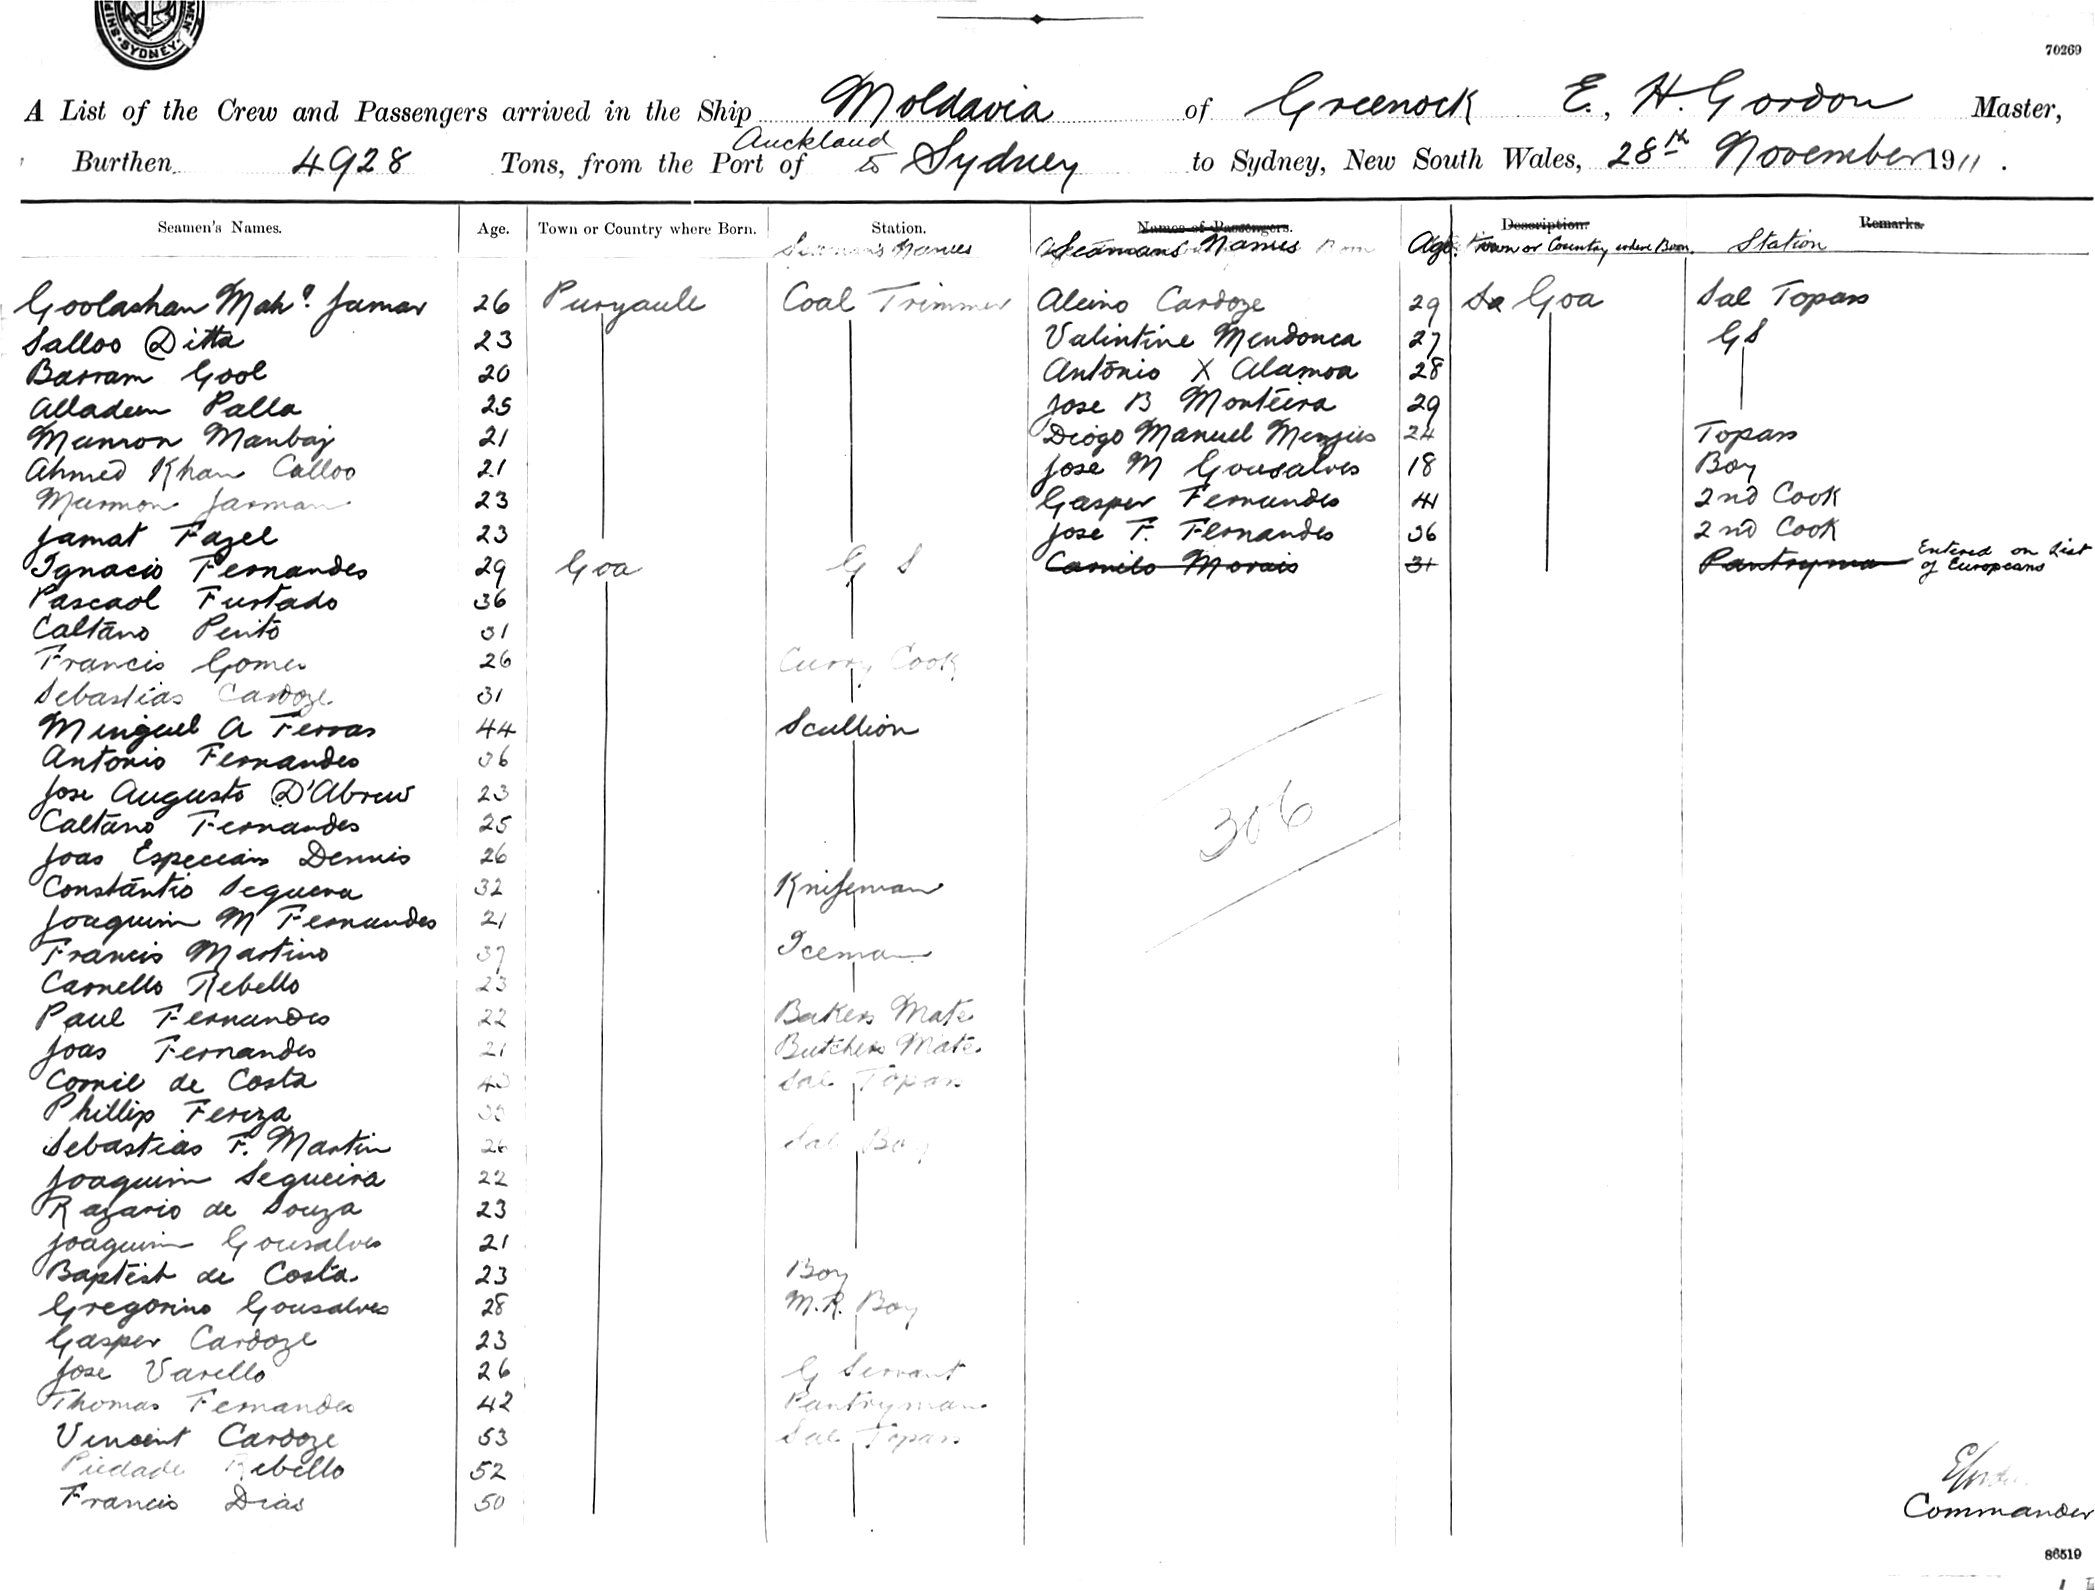 SYDNEY
70269
A List of the Crew and Passengers arrived in the Ship Moldavia of Greenock E. H. Gordon Master,
Burthen 4928 Tons, from the Port of Auckland to Sydney to Sydney, New South Wales, 28th November 1911.
Seamen's Names. Age. Town or Country where Born. Station. Names of Passengers. Age. Description. Remarks.
Seaman's Names Seamans Names Age Town or Country where Born. Station
Goolashan Mahd. Jamar 26 Puryaule Coal Trimmer Aleino Cardoze 29 Goa Sal Topass
Salloo Ditta 23 Valintine Mendonca 27 GS
Barram Gool 20 Antonio X Alamoa 28
Alladeen Palla 25 Jose B Monteira 29
Mumon Manbaj 21 Diogo Manuel Menzies 24 Topass
Ahmed Khan Calloo 21 Jose M Gousalves 18 Boy
Mumon Jarman 23 Gasper Fernandes 41 2nd Cook
Jamat Fazel 23 Jose F. Fernandes 36 2nd Cook
Ignacio Fernandes 29 Goa G S Camilo Morais 31 Pantryman Entered on List of Europeans
Pascaol Furtado 36
Caltano Pinto 31
Francis Gomes 26 Curry Cook
Sebastias Cardoze 31
Minguel A Ferras 44 Scullion
Antonio Fernandes 36
Jose Augusto D'Abreu 23
Caltano Fernandes 25
Joas Especiais Dennis 26
306
Constantio Sequera 32 Knifeman
Joaquim M Fernandes 21
Francis Martino 37 Iceman
Carnello Rebello 23
Paul Fernandes 22 Bakers Mate
Joas Fernandes 21 Butchers Mate
Cornil de Costa 40 Sal Topass
Phillip Fereza
Sebastias F. Martin 26 Sal Boy
Joaquim Segueira 22
Razario de Souza 23
Joaquim Gousalves 21
Baptist de Costa 23 Boy
Gregorino Gousalves 28 M.R. Boy
Gasper Cardoze 23
Jose Varello 26 G Servant
Thomas Fernandes 42 Pantryman
Vincent Cardoze 53 Sal Topass
Piedade Rebello 52
Francis Dias 50
Commander
86519